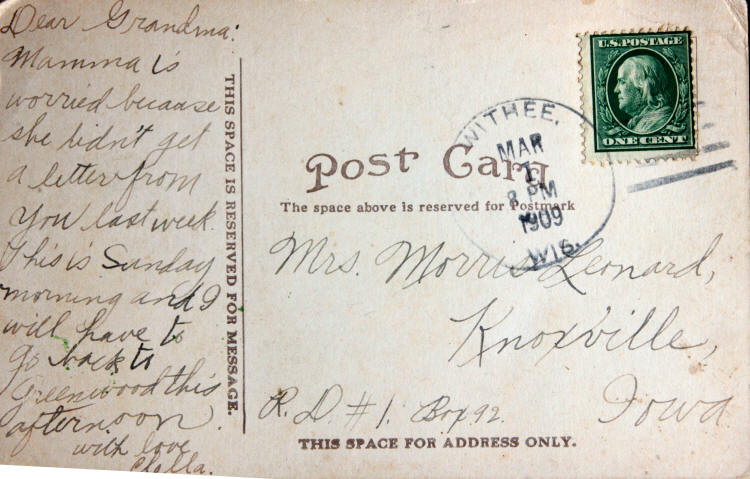 Dear Grandma:
Mamma is
worried because
she didn't get
a letter from
you last week.
This is Sunday
morning and I
will have to
go back to
Greenwood this
afternoon.
with love
Chella.
THIS SPACE IS RESERVED FOR MESSAGE.
U.S. POSTAGE
ONE CENT
WITHEE,
MAR
1
8 PM
1909
WIS.
Post Card
The space above is reserved for Postmark
Mrs. Morris Leonard,
Knoxville,
R.D. #1. Box 92. Iowa
THIS SPACE FOR ADDRESS ONLY.